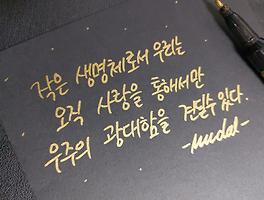 작은 생명체로서 우리는
오직 사랑을 통해서만
우주의 광대함을 견딜수 있다.
-nudal-